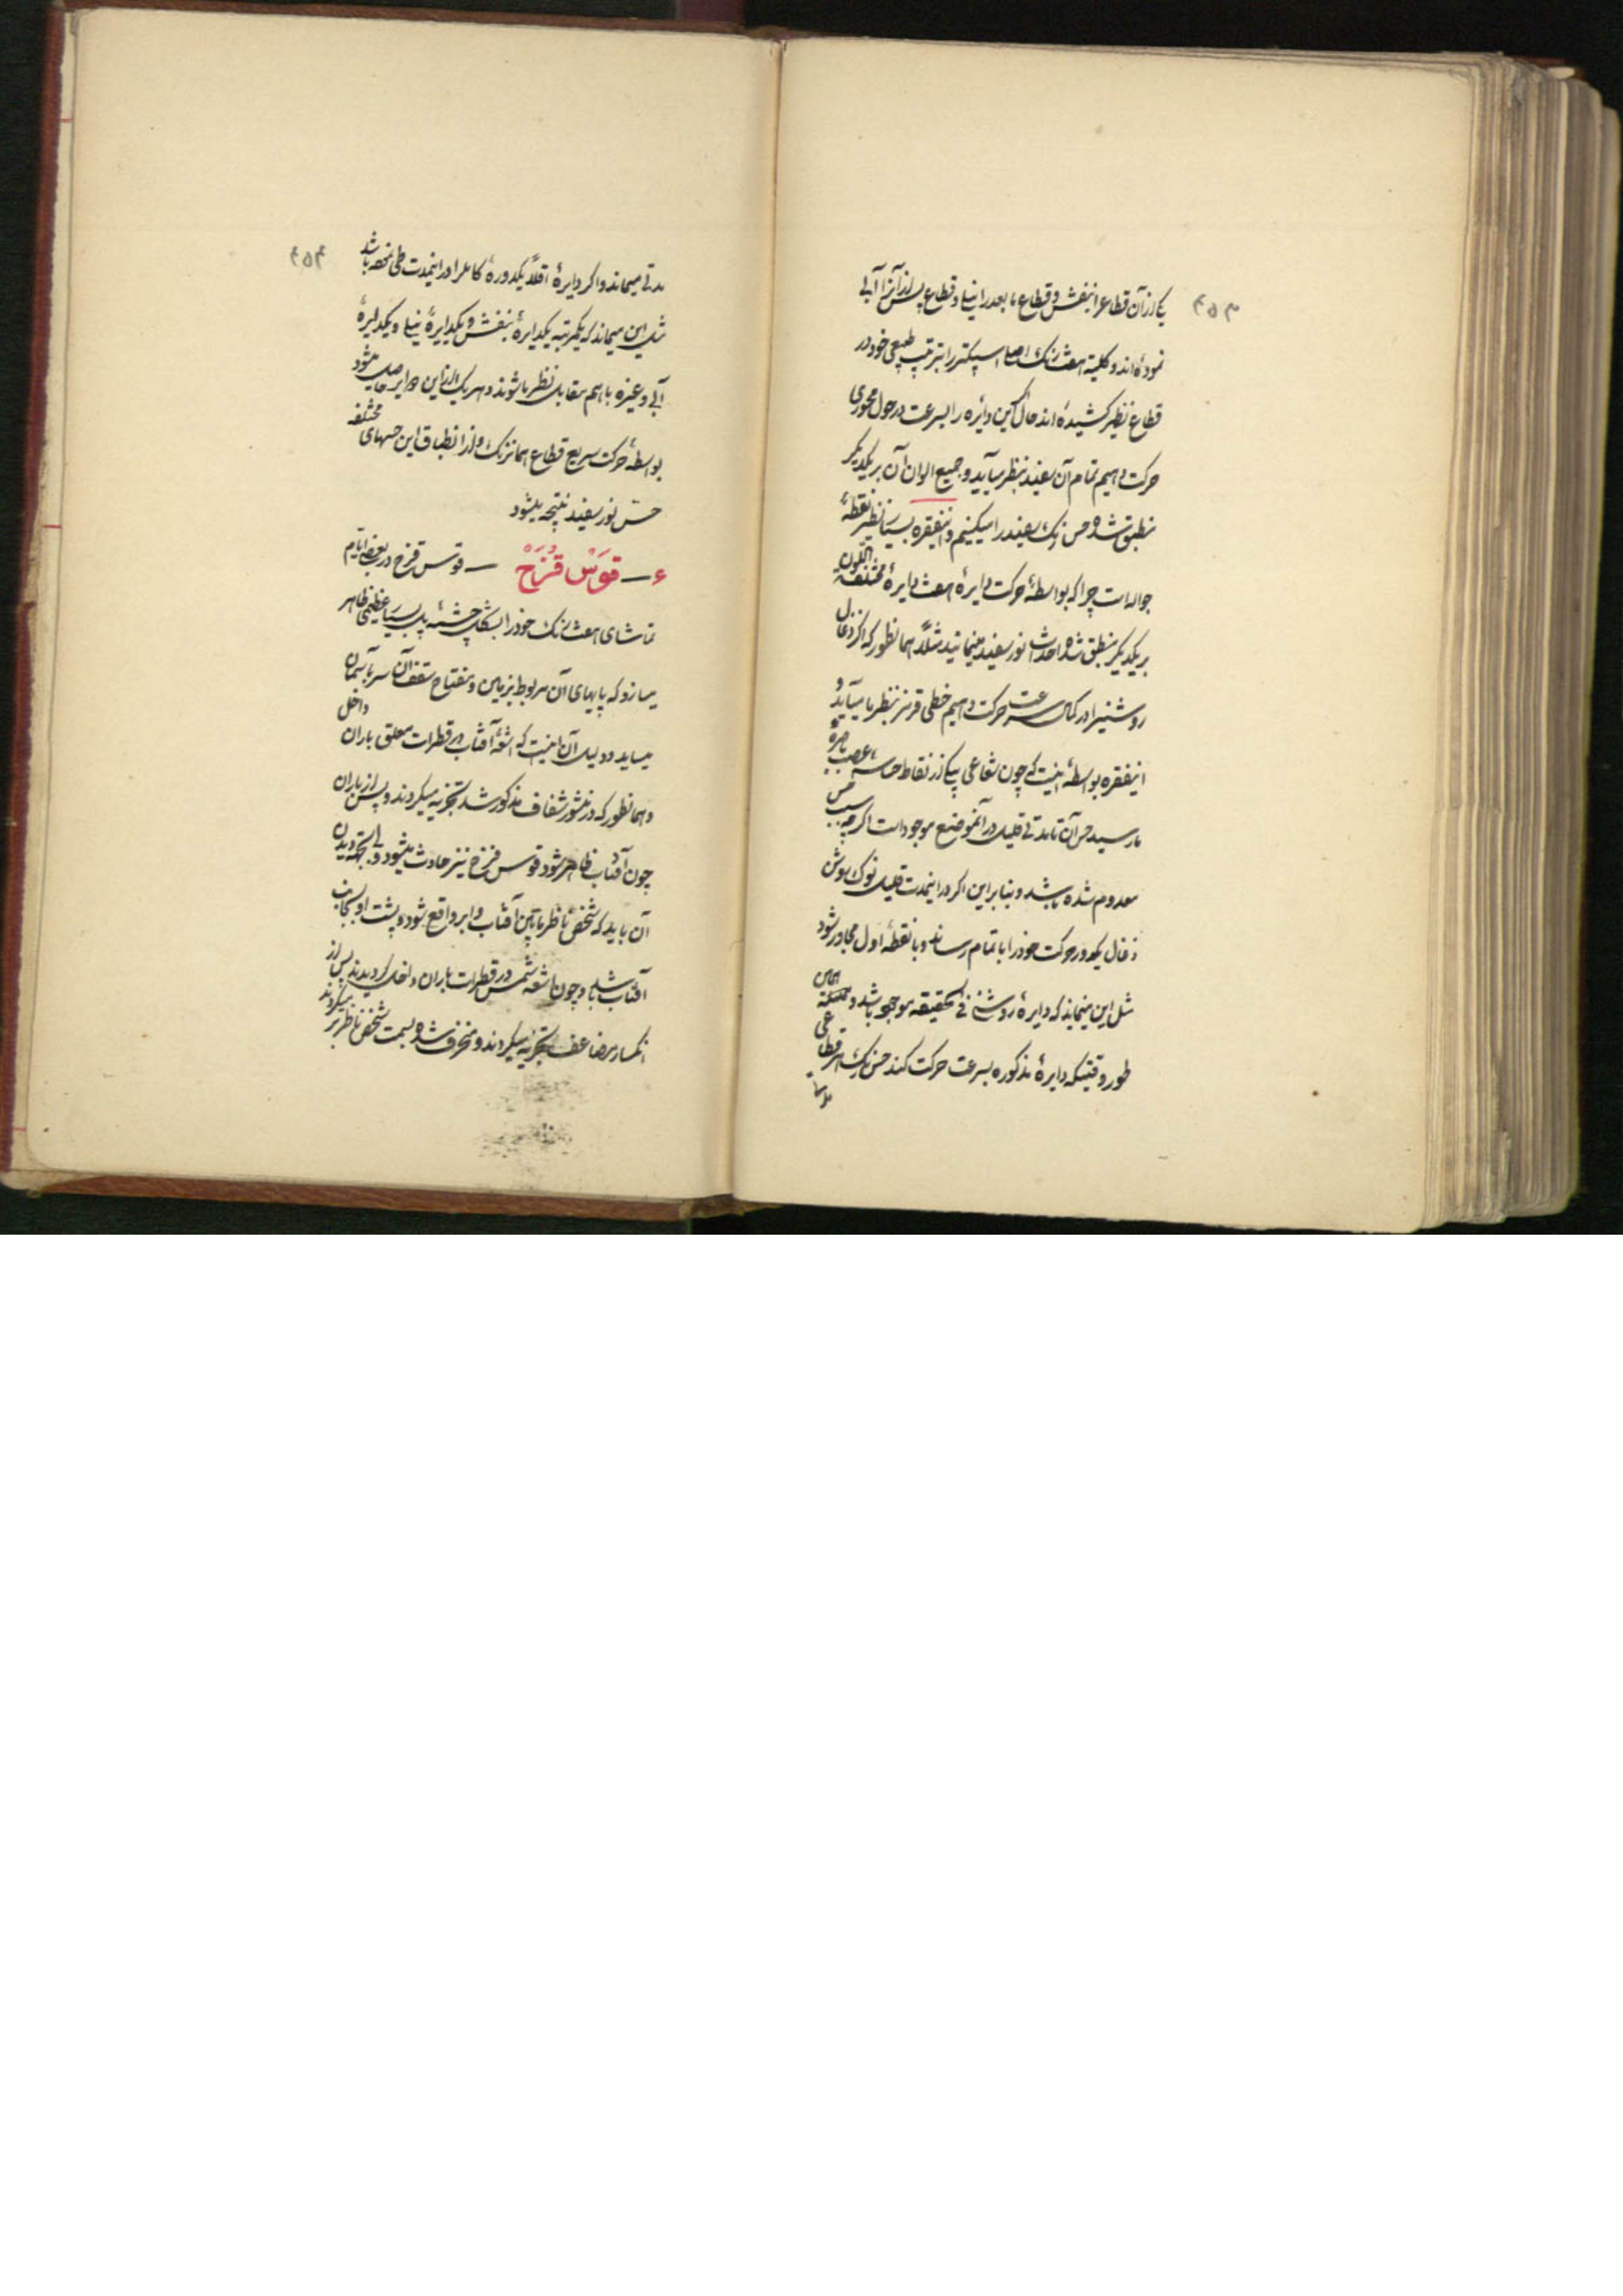 ۴۵۳
یکی از آن قطاع را بنفش و قطاع ما بعد را نیلی و قطاع پس از آنرا آبی
نموده‌اند و کلیته هفت رنگ اصلی اسپکتر را بترتیب طبیعی خود در
قطاع نظیر کشیده‌اند حال اگر این دایره را بسرعت در حول محوری
حرکت دهیم تمام آن سفید بنظر میآید و جمیع الوان آن بر یکدیگر
منطبق شده حس رنگ سفید را میکنیم و اینفقره بسیار نظیر نقطهٔ
جواله است چرا که بواسطهٔ حرکت دایرهٔ هفت دایرهٔ مختلفة اللون
بر یکدیگر منطبق شده احداث نور سفید مینمایند مثلاً همانطور که اگر ذغال
روشنیرا در کمال سرعت حرکت دهیم خطی قرمز بنظر ما میآید و
اینفقره بواسطهٔ اینست که چون شعاعی بیکی از نقاط حاسهٔ عصب باصره
ما رسید حس آن تا مدتی قلیل در آنموضع موجود است اگر چه سبب حس
معدوم شده باشد و بنا بر این اگر در اینمدت قلیل نوک سوزش
ذغال یکدور حرکت خود را باتمام رساند و با نقطهٔ اول مجاور شود
مثل این مینماید که دایرهٔ روشنی فی الحقیقه موجود باشد و همان
طور وقتیکه دایرهٔ مذکوره بسرعت حرکت کند حس رنگ هر قطاعی
مدتی
۴۵۴
مدتی میماند و اگر دایرهٔ اقلاً یکدورهٔ کامل را در اینمدت طی نموده باشد
مثل این میماند که یکمرتبه یکدایرهٔ بنفش و یکدایرهٔ نیلی و یکدایرهٔ
آبی و غیره با هم مقابل نظر ما شوند و هر یک از این دوایر حاصل میشود
بواسطهٔ حرکت سریع قطاع همانرنگ و از انطباق این حسهای مختلفه
حس نور سفید نتیجه میشود
۶ — قوس قزح — قوس قزح در بعضی ایام
تماشای هفت رنگ خود را بشکل چشمهٔ پل بسیار عظیمی ظاهر
میسازد که پایهای آن مربوط بزمین و مفتاح سقف آن سر بآسمان
میساید و دلیل آن اینست که اشعهٔ آفتاب در قطرات معلق باران داخل
و همانطور که در منشور شفاف مذکور شد تجزیه میکردند و پس از باران
چون آفتاب ظاهر شود قوس قزح نیز حادث میشود و بجهة دیدن
آن باید که شخص ناظر مابین آفتاب و ابر واقع شود و پشت او بجانب
آفتاب باشد و چون اشعهٔ شمس در قطرات باران داخل کردیدند پس از
انکسار مضاعف تجزیه میکردند و منحرف شده بسمت شخص ناظر بر میکردند